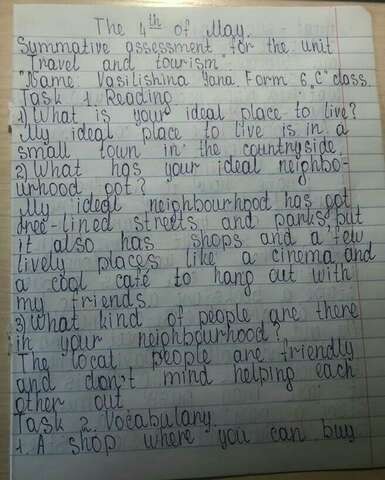 The 4th of May.
Summative assessment for the unit
"Travel and tourism"
Name: Vasilishina Yana. Form 6 "C" class.
Task 1. Reading
1) What is your ideal place to live?
My ideal place to live is in a
small town in the countryside.
2) What has your ideal neighbo-
urhood got?
My ideal neighbourhood has got
tree-lined streets and parks, but
it also has shops and a few
lively places like a cinema and
a cool café to hang out with
my friends.
3) What kind of people are there
in your neighbourhood?
The local people are friendly
and don't mind helping each
other out.
Task 2. Vocabulary.
1. A shop where you can buy